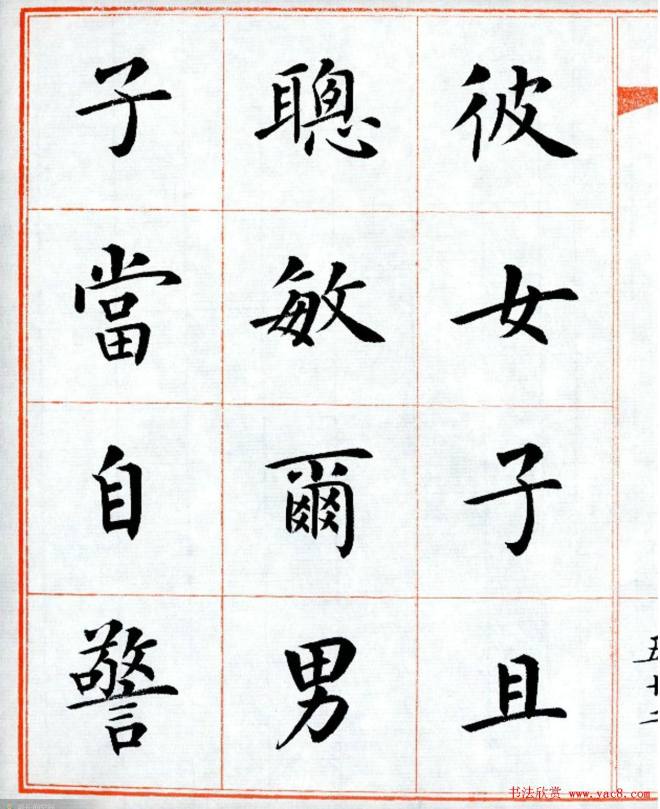 彼女子且
聰敏爾男
子當自警
五十二
书法欣赏 www.yac8.com